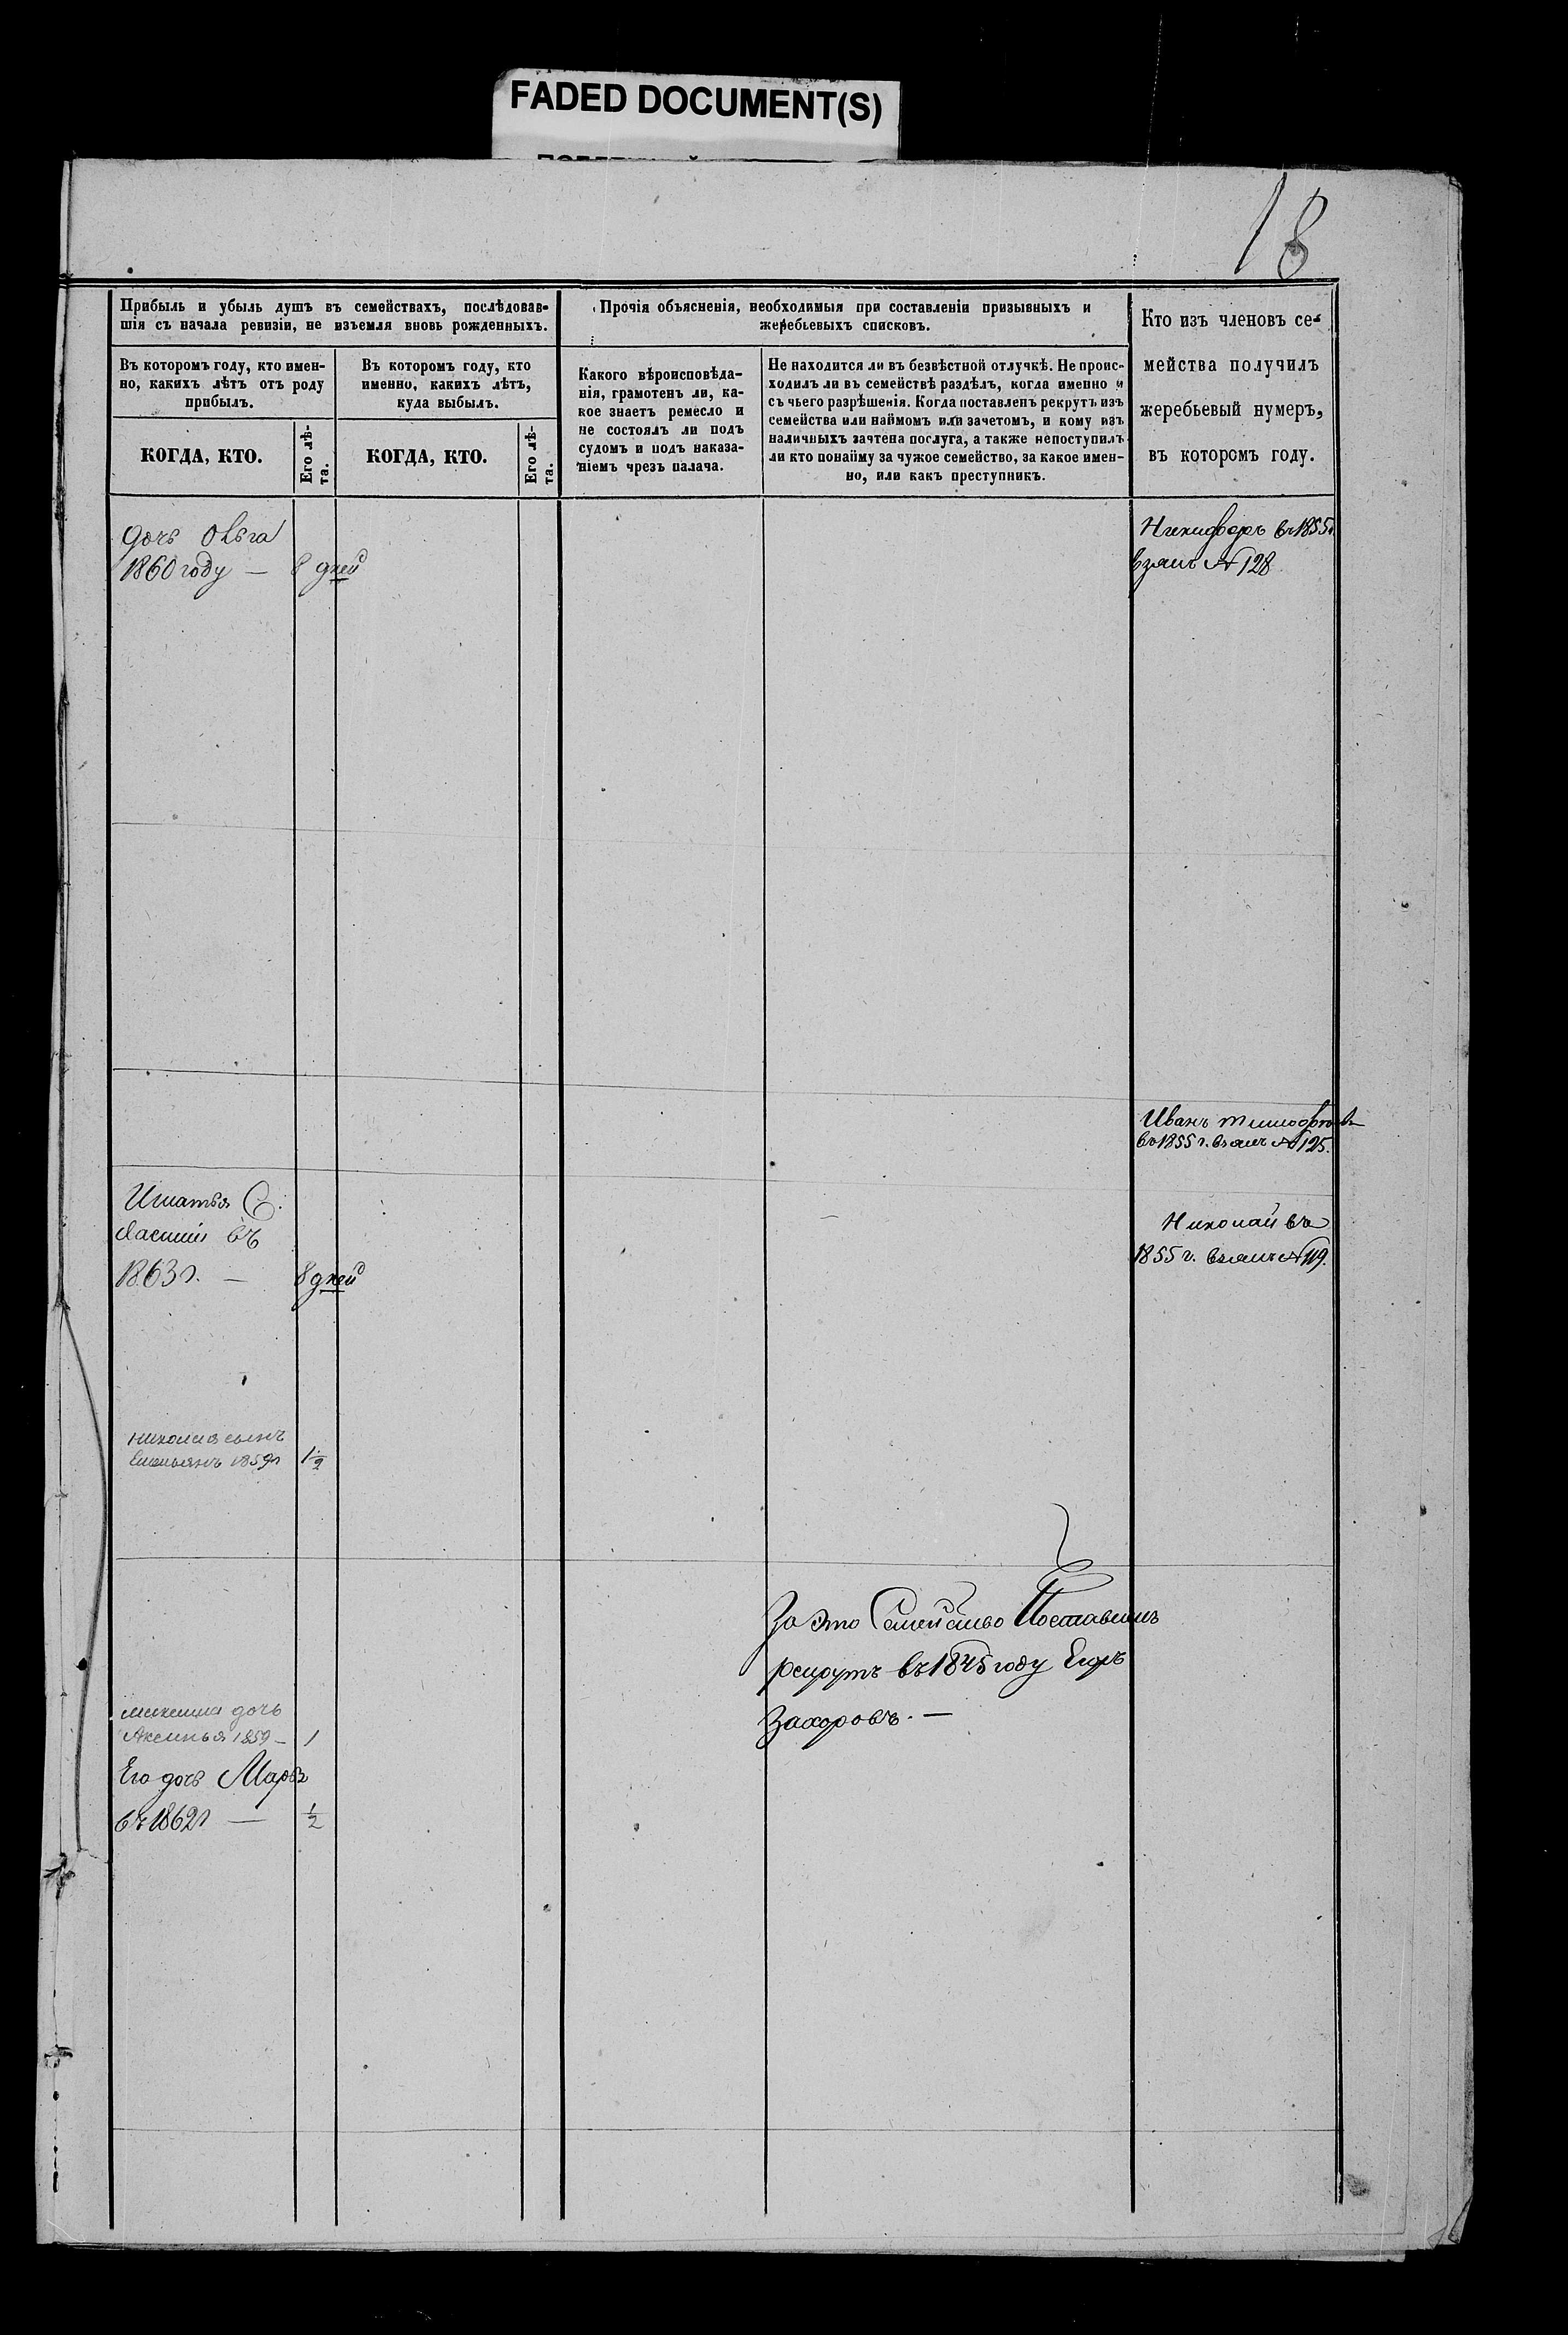 FADED DOCUMENT(S)
18
Прибыль и убыль душъ въ семействахъ, послѣдовав-
шія съ начала ревизіи, не изъемля вновь рожденныхъ.
Въ которомъ году, кто имен-
но, какихъ лѣтъ отъ роду
прибылъ.
Въ которомъ году, кто
именно, какихъ лѣтъ,
куда выбылъ.
КОГДА, КТО.
Его лѣ-
та.
КОГДА, КТО.
Его лѣ-
та.
Прочія объясненія, необходимыя при составленіи призывныхъ и
жеребьевыхъ списковъ.
Какого вѣроисповѣда-
нія, грамотенъ ли, ка-
кое знаетъ ремесло и
не состоялъ ли подъ
судомъ и подъ наказа-
ніемъ чрезъ палача.
Не находится ли въ безвѣстной отлучкѣ. Не проис-
ходилъ ли въ семействѣ раздѣлъ, когда именно и
съ чьего разрѣшенія. Когда поставленъ рекрутъ изъ
семейства или наймомъ или зачетомъ, и кому изъ
наличныхъ зачтена послуга, а также непоступилъ
ли кто понайму за чужое семейство, за какое имен-
но, или какъ преступникъ.
Кто изъ членовъ се-
мейства получилъ
жеребьевый нумеръ,
въ которомъ году.
дочь Ольга
1860 году — 8 дней
Никифоръ въ 1855 г.
взялъ № 128
Иванъ Тимофеевъ
въ 1855 г. взялъ № 125.
Игнатья С.
въ
1863 г. — 8 дней
Николай въ
1855 г. взялъ № 119.
Николая сынъ
Емельянъ 1859 г 1 1/2
За это Семейство Поставленъ
рекрутъ въ 1845 году Егоръ
Захаровъ. —
дочь
Аксинья 1859 — 1
Его дочь Марья
въ 1862 г — 1/2